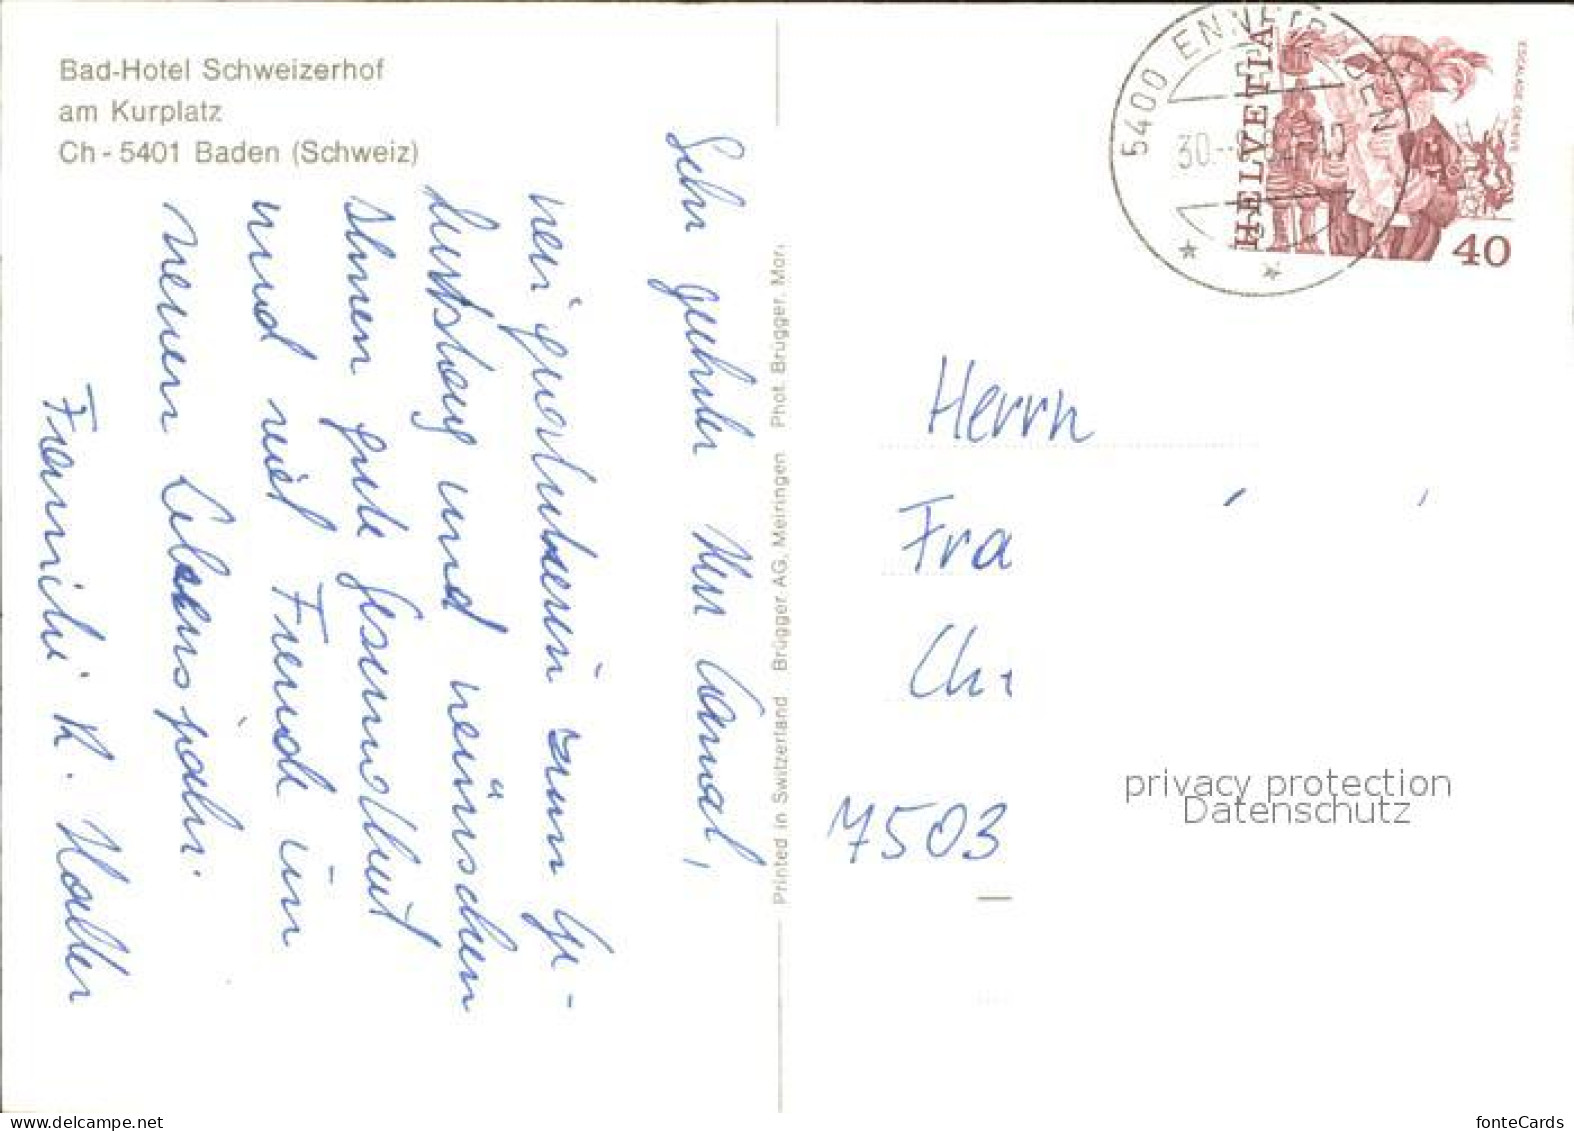 Bad-Hotel Schweizerhof
am Kurplatz
Ch - 5401 Baden (Schweiz)
Sehr geehrter Herr Conrad,
wir gratulieren zum Ge-
burtstag und wünschen
Ihnen gute Gesundheit
und viel Freude im
neuen Lebensjahr.
Familie K. Haller
Printed in Switzerland Brügger AG, Meiringen Phot. Brügger, Mei
5400 ENNETBADEN
30.
HELVETIA
ESCALADE GENEVE
40
Herrn
Fra
Ch
7503
privacy protection
Datenschutz
www.delcampe.net
fonteCards